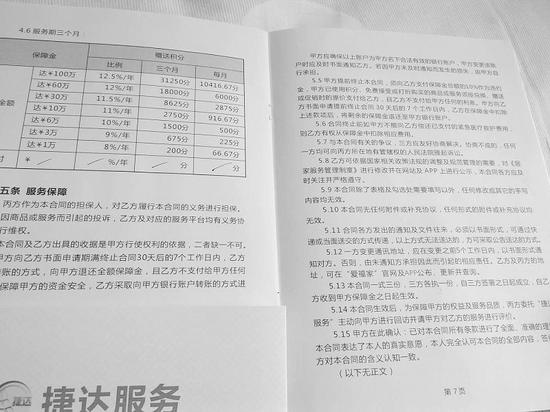 4.6 服务期三个月
保障金 赠送积分
比例 三个月 每月
达¥100万 12.5%/年 31250分 10416.67分
达¥60万 12%/年 18000分 6000分
达¥30万 11.5%/年 8625分 2875分
达¥10万 11%/年 2750分 916.67分
达¥6万 10%/年 1500分 500分
达¥3万 9%/年 675分 225分
达¥1万 8%/年 200分 66.67分
¥ %/年 分 分
五条 服务保障
丙方作为本合同的担保人，对乙方履行本合同的义务进行担保。
因商品或服务而引起的投诉，乙方及对应的服务平台均有义务协
行维权。
本合同及乙方出具的收据是甲方行使权利的依据，二者缺一不可。
甲方向乙方书面申请期满终止合同30天后的7个工作日内，乙方
转账的方式，向甲方退还全额保障金，且乙方不支付给甲方任何
保障甲方的资金安全，乙方采取向甲方银行账户转账的方式进
捷达
捷达服务
甲方应确保以上账户为甲方名下合法有效的银行账户，甲方变更账
户时应及时书面通知乙方。若因甲方未及时通知而发生的损失，由甲方自
行承担。
5.5 甲方提前终止本合同，须向乙方支付保障金总额的10%作为违约
金，甲方已使用积分、免费接受或打折购买的商品或服务的
或促销时的原价支付给乙方，且乙方不支付给甲方任何的利息。甲方向乙
方书面申请提前终止合同 30 天后的 7 个工作日内，乙方在保障金中扣除
上述款项后，将剩余的保障金退还至甲方银行账户。
5.6 合同终止前如甲方不能向乙方偿还已支付的紧急医疗救护费用，
则乙方有权从保障金中扣除相应费用。
5.7 与本合同有关的争议，三方应友好协商解决，协商不成的，任何
一方均可向丙方所在地有管辖权的人民法院提起诉讼。
5.8 乙方可依据国家相关政策法规的调整及规范管理的需要，对《居
家服务管理制度》进行修改并在网站及 APP 上进行公示，本合同各方应及
时关注并严格遵守。
5.9 本合同除了表格及勾选处需要填写以外，任何修改或其它的手写
内容均无效。
5.10 本合同无任何附件或补充协议，任何形式的附件或补充协议均
无效。
5.11 合同各方发出的通知及文件往来，必须以书面形式，可通过快
递或当面送交的方式传递，以上方式无法送达的，方可采取公告送达的方式。
5.12 一方变更通讯地址，应在变更之前5个工作日内，以书面形式通
知对方。否则，由未通知方承担因此而引起的相应责任。乙方及丙方的地
址，可在“爱福家”官网及APP公布、更新并查询。
5.13 本合同一式三份，三方各执一份，自三方签署之日起成立，自乙
方收到甲方保障金之日起生效。
5.14 本合同生效后，为保障甲方的权益及服务品质，丙方委托“捷达
服务”主动向甲方进行回访并请甲方对乙方的服务进行评价。
5.15 甲方在此确认：已对本合同所有条款进行了全面、准确的理
本合同表达了本人的真实意愿，本人完全认可本合同的全部内容，签
方对本合同的含义认知一致。
（以下无正文）
第 7 页